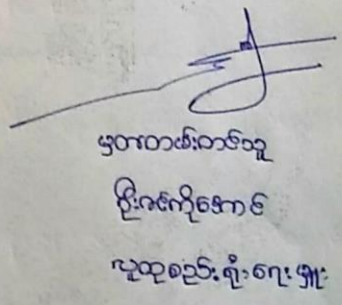 မှတ်တမ်းတင်သူ
ဦးဇင်ကိုအောင်
လူထုစည်းရုံးရေးမှူး